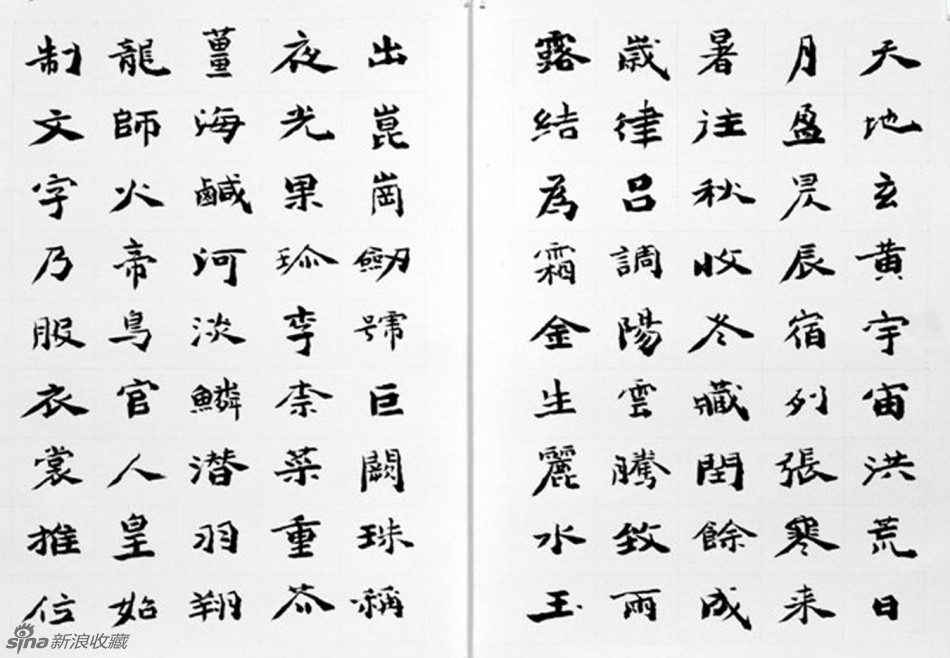 天地玄黃宇宙洪荒日
月盈昃辰宿列張寒来
暑注秋收冬藏閏餘成
歲律吕調陽雲騰致雨
露結為霜金生麗水玉
出崑崗劒號巨闕珠稱
夜光果珎李柰菜重芥
薑海鹹河淡鱗潛羽翔
龍師火帝鳥官人皇始
制文字乃服衣裳推位
sina新浪收藏